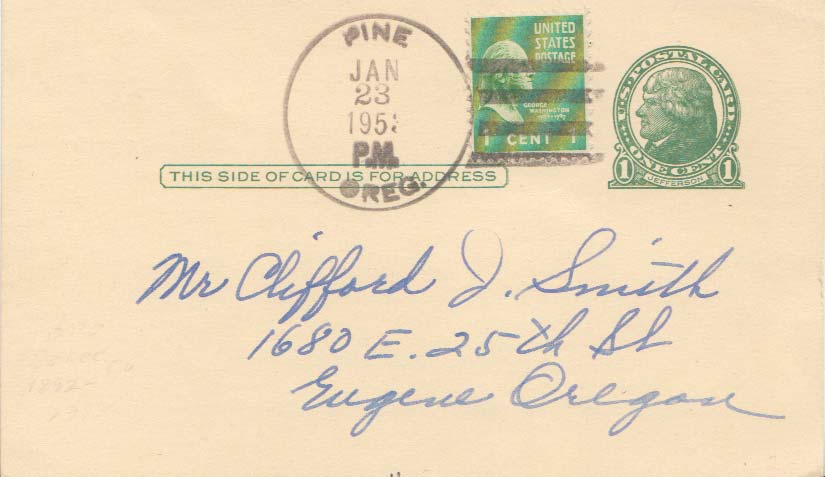 PINE
JAN
23
195
P.M.
OREG.
UNITED
STATES
POSTAGE
GEORGE
WASHINGTON
1 CENT 1
U.S. POSTAL CARD
1 ONE CENT 1
JEFFERSON
THIS SIDE OF CARD IS FOR ADDRESS
Mr Clifford J. Smith
1680 E. 25th St
Eugene Oregon
1892-